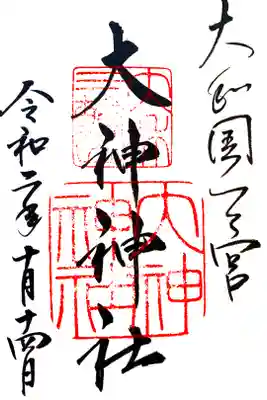 大和国一之宮
大神神社
令和二年十月十四日
大神神社